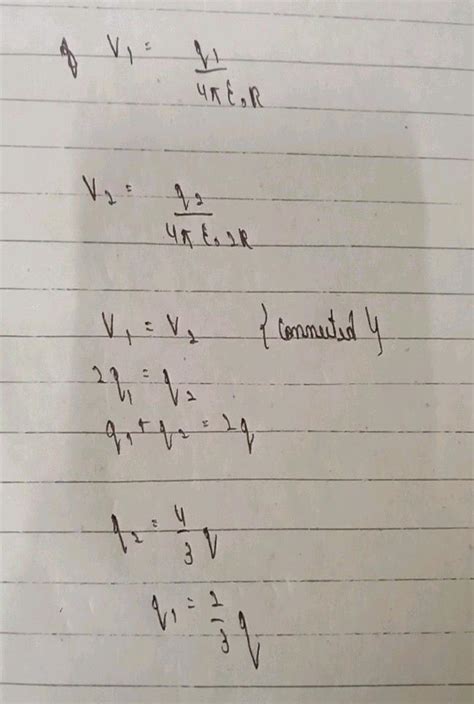 V₁ = q₁
4πε₀R
V₂ = q₂
4πε₀2R
V₁ = V₂ {connected}
2q₁ = q₂
q₁ + q₂ = 2q
q₂ = 4/3 q
q₁ = 2/3 q